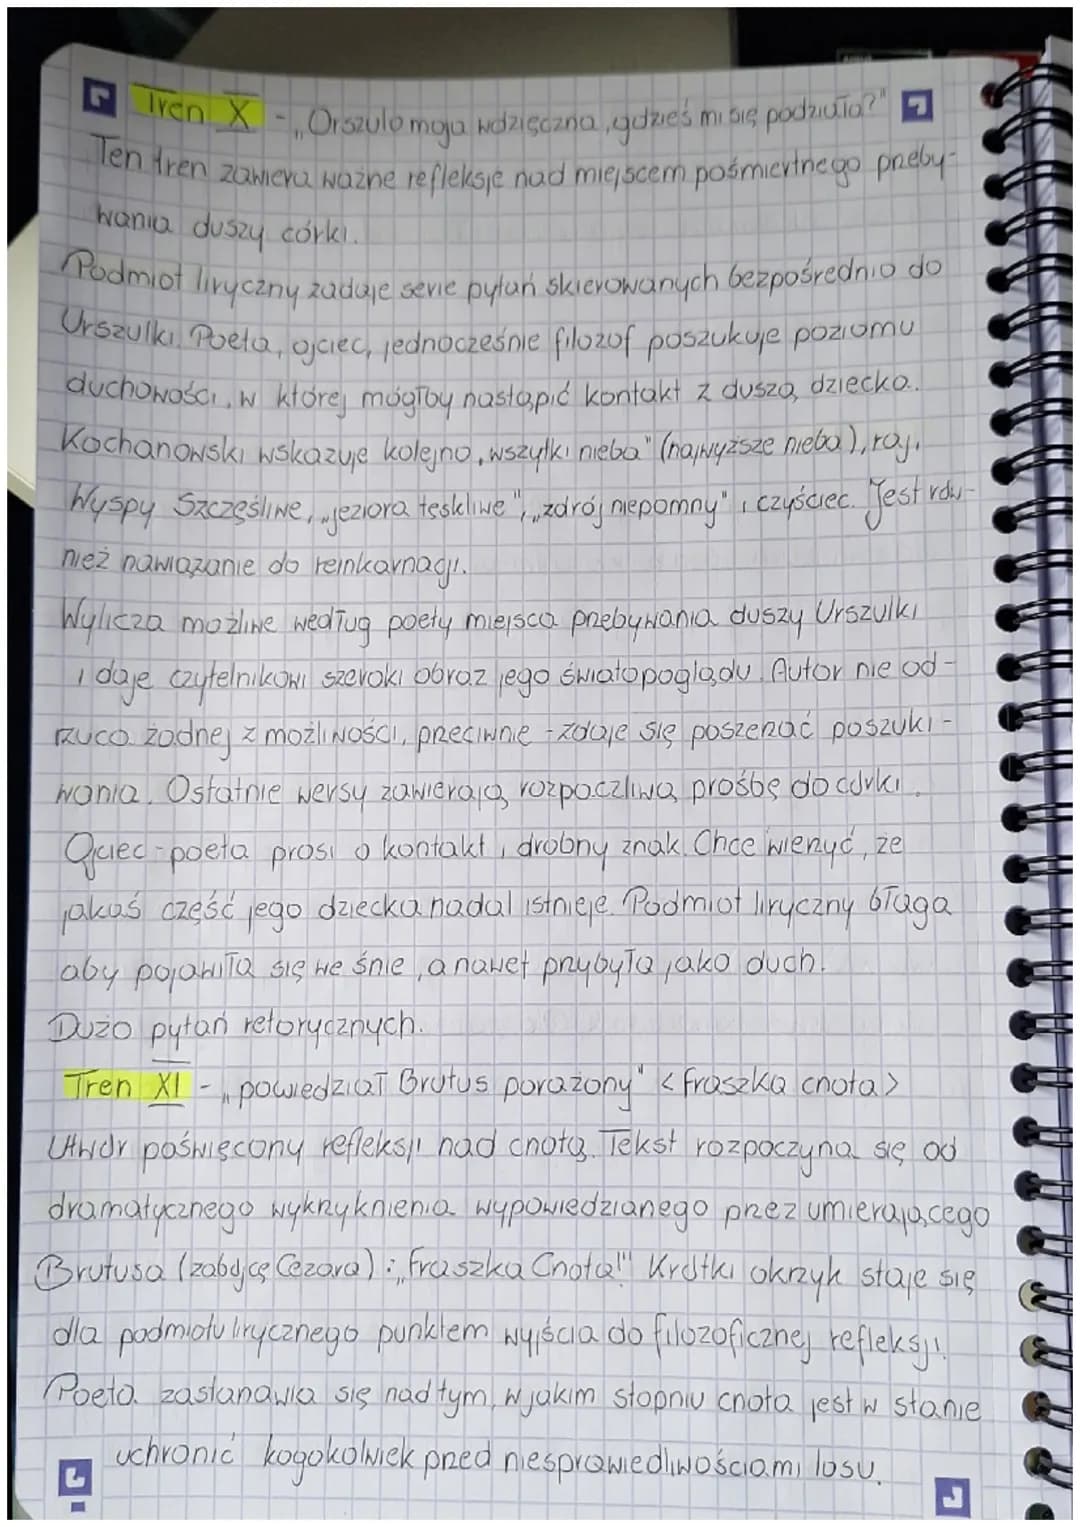 Tren X - „Orszulo moja wdzięczna, gdzieś mi się podziała?"
Ten tren zawiera ważne refleksje nad miejscem pośmiertnego przeby-
wania duszy córki.
Podmiot liryczny zadaje serie pytań skierowanych bezpośrednio do
Urszulki. Poeta, ojciec, jednocześnie filozof poszukuje poziomu
duchowości, w której mógłby nastąpić kontakt z duszą dziecka.
Kochanowski wskazuje kolejno „wszytki nieba" (najwyższe nieba), raj,
Wyspy Szczęśliwe, „jeziora teskliwe", „zdrój niepomny" i czyściec. Jest rów-
nież nawiązanie do reinkarnacji.
Wylicza możliwe według poety miejsca przebywania duszy Urszulki
i daje czytelnikowi szeroki obraz jego światopoglądu. Autor nie od-
rzuca żadnej z możliwości, przeciwnie - zdaje się poszerzać poszuki-
wania. Ostatnie wersy zawierają rozpaczliwą prośbę do córki.
Ojciec-poeta prosi o kontakt, drobny znak. Chce wierzyć, że
jakaś część jego dziecka nadal istnieje. Podmiot liryczny błaga
aby pojawiła się we śnie, a nawet przybyła jako duch.
Dużo pytań retorycznych.
Tren XI - „powiedział Brutus porażony" <fraszka cnota>
Utwór poświęcony refleksji nad cnotą. Tekst rozpoczyna się od
dramatycznego wykrzyknienia wypowiedzianego przez umierającego
Brutusa (zabójcę Cezara): „Fraszka Cnota!" Krótki okrzyk staje się
dla podmiotu lirycznego punktem wyjścia do filozoficznej refleksji.
Poeta zastanawia się nad tym, w jakim stopniu cnota jest w stanie
uchronić kogokolwiek przed niesprawiedliwościami losu.